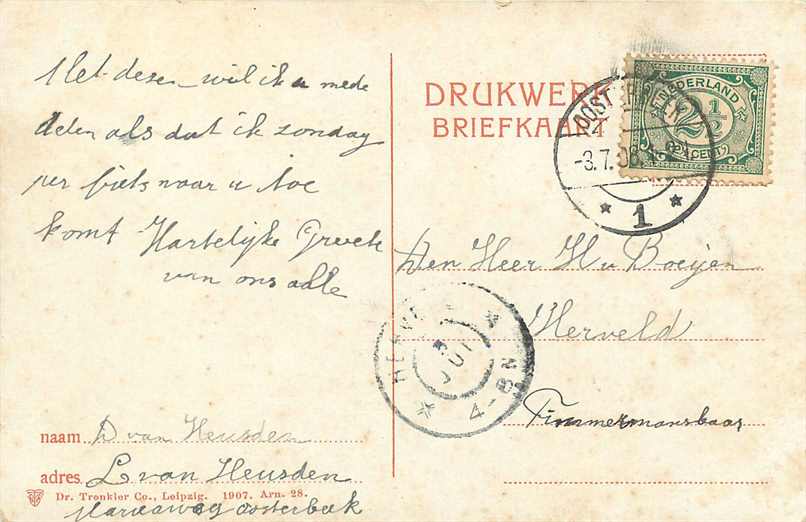 Met desen wil ik u mede
delen als dat ik zondag
per fiets naar u toe
komt Hartelijke Groete
van ons alle
naam D van Heusden
adres L van Heusden
Dr. Trenkler Co., Leipzig. 1907. Arn. 28.
Mariaweg oosterbeek
DRUKWERK
BRIEFKAART
NEDERLAND
2½
CENT
OOSTERBEEK
-3.7.08
1
Den Heer H v Boeijen
Herveld
Timmermansbaas
HERVE
JUL
4-8N